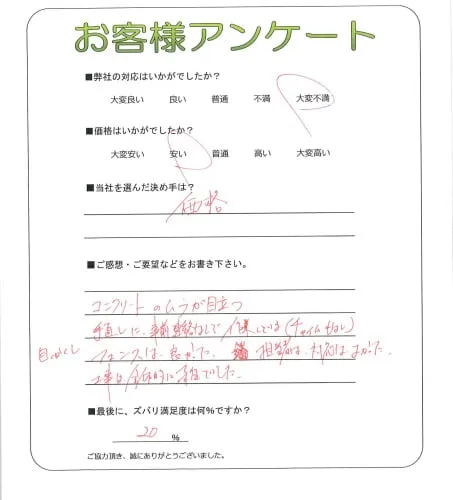 お客様アンケート
■弊社の対応はいかがでしたか？
大変良い 良い 普通 不満 大変不満
■価格はいかがでしたか？
大変安い 安い 普通 高い 大変高い
■当社を選んだ決め手は？
価格
■ご感想・ご要望などをお書き下さい。
コンクリートのムラが目立つ
手直しに、事前連絡なしで 作業している(チャイムなし)
目かくし フェンスは、良かった、 担当者は、対応はよかった、
工事は全体的に でした
■最後に、ズバリ満足度は何%ですか？
20 %
ご協力頂き、誠にありがとうございました。